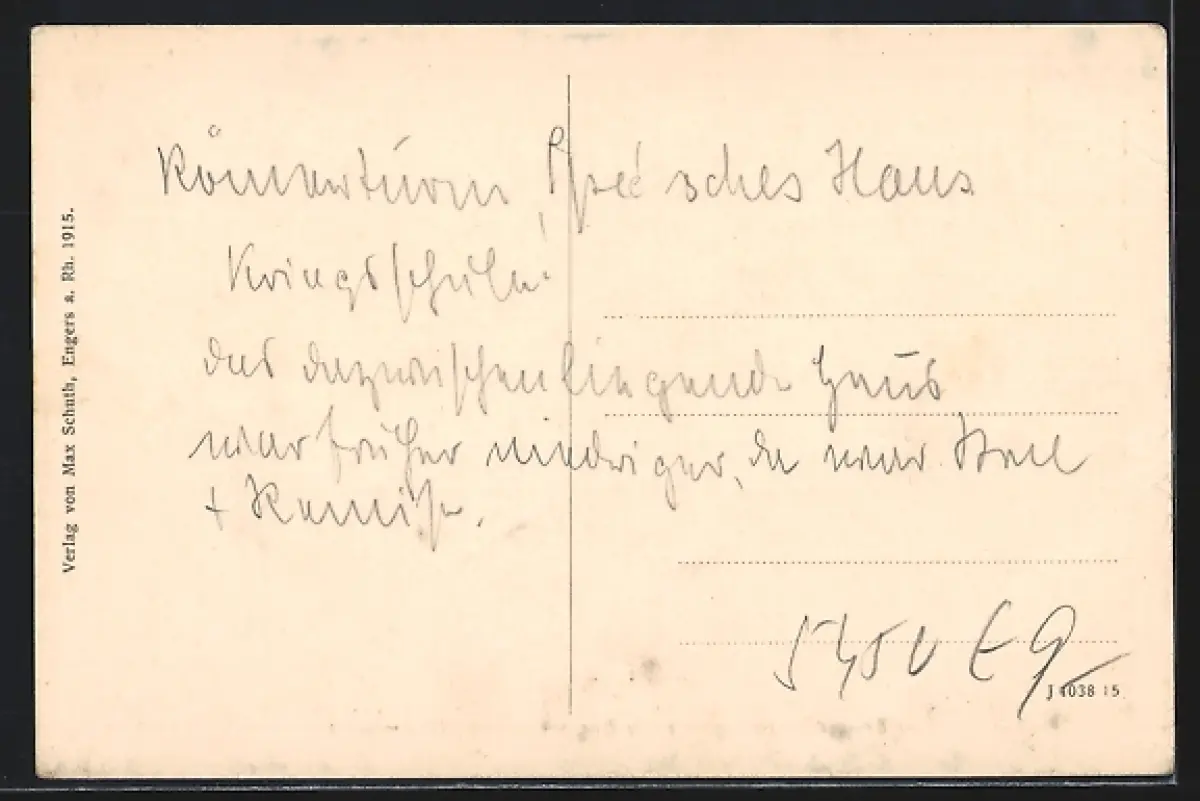 Römerturm, sches Haus
Kriegsschule
das dazwischenliegende Haus
war früher niedriger, da war Stall
+ Remise.
5450 Eg
Verlag von Max Schuth, Engers a. Rh. 1915.
J 4038 15